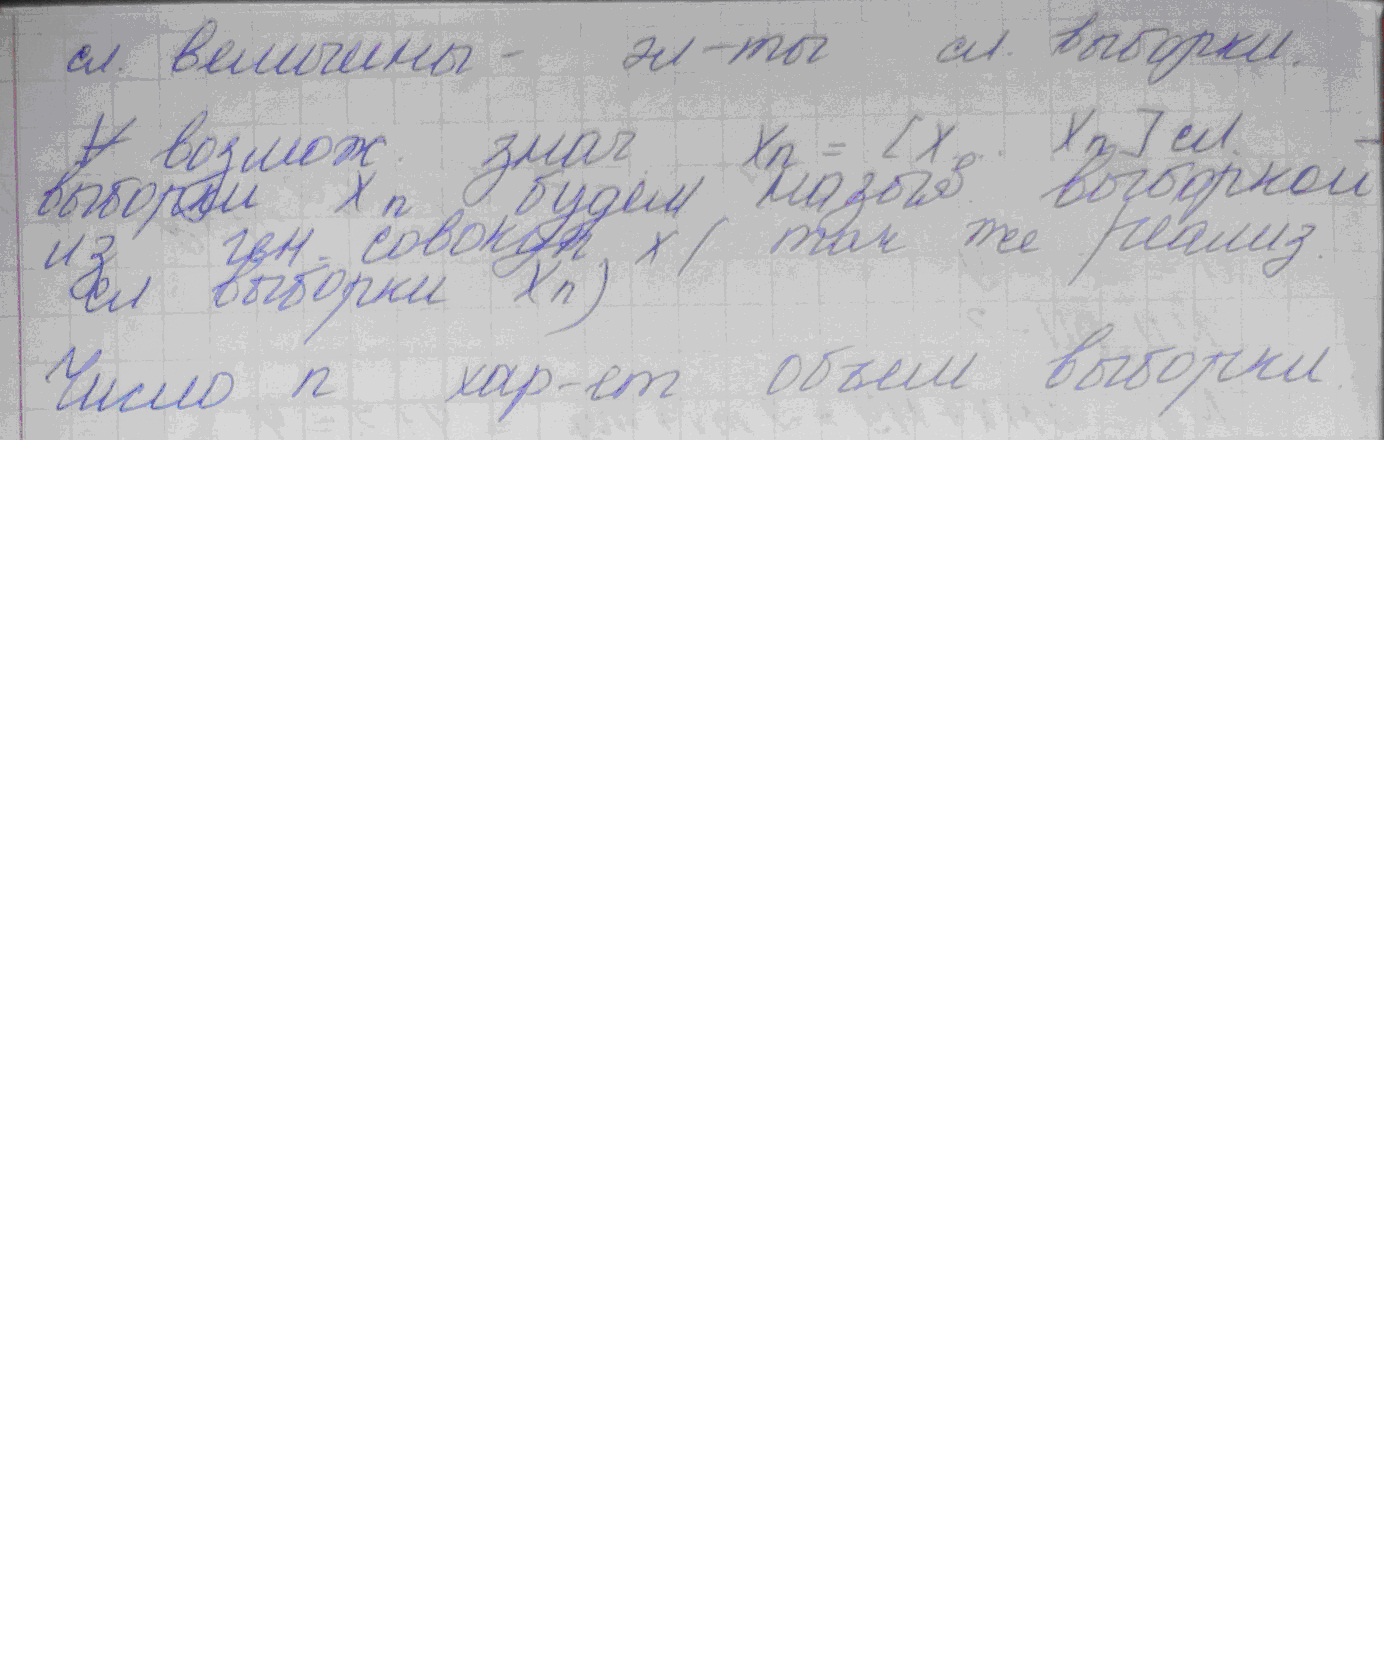 сл. величины - эл-ты сл. выборки.
∀ возмож. знач. Xn = [X1... Xn] сл. -
выборки Xn будем назыв. выборкой
из ген. совокуп. X (так же реализ.
сл выборки Xn)
Число n хар-ет объем выборки.